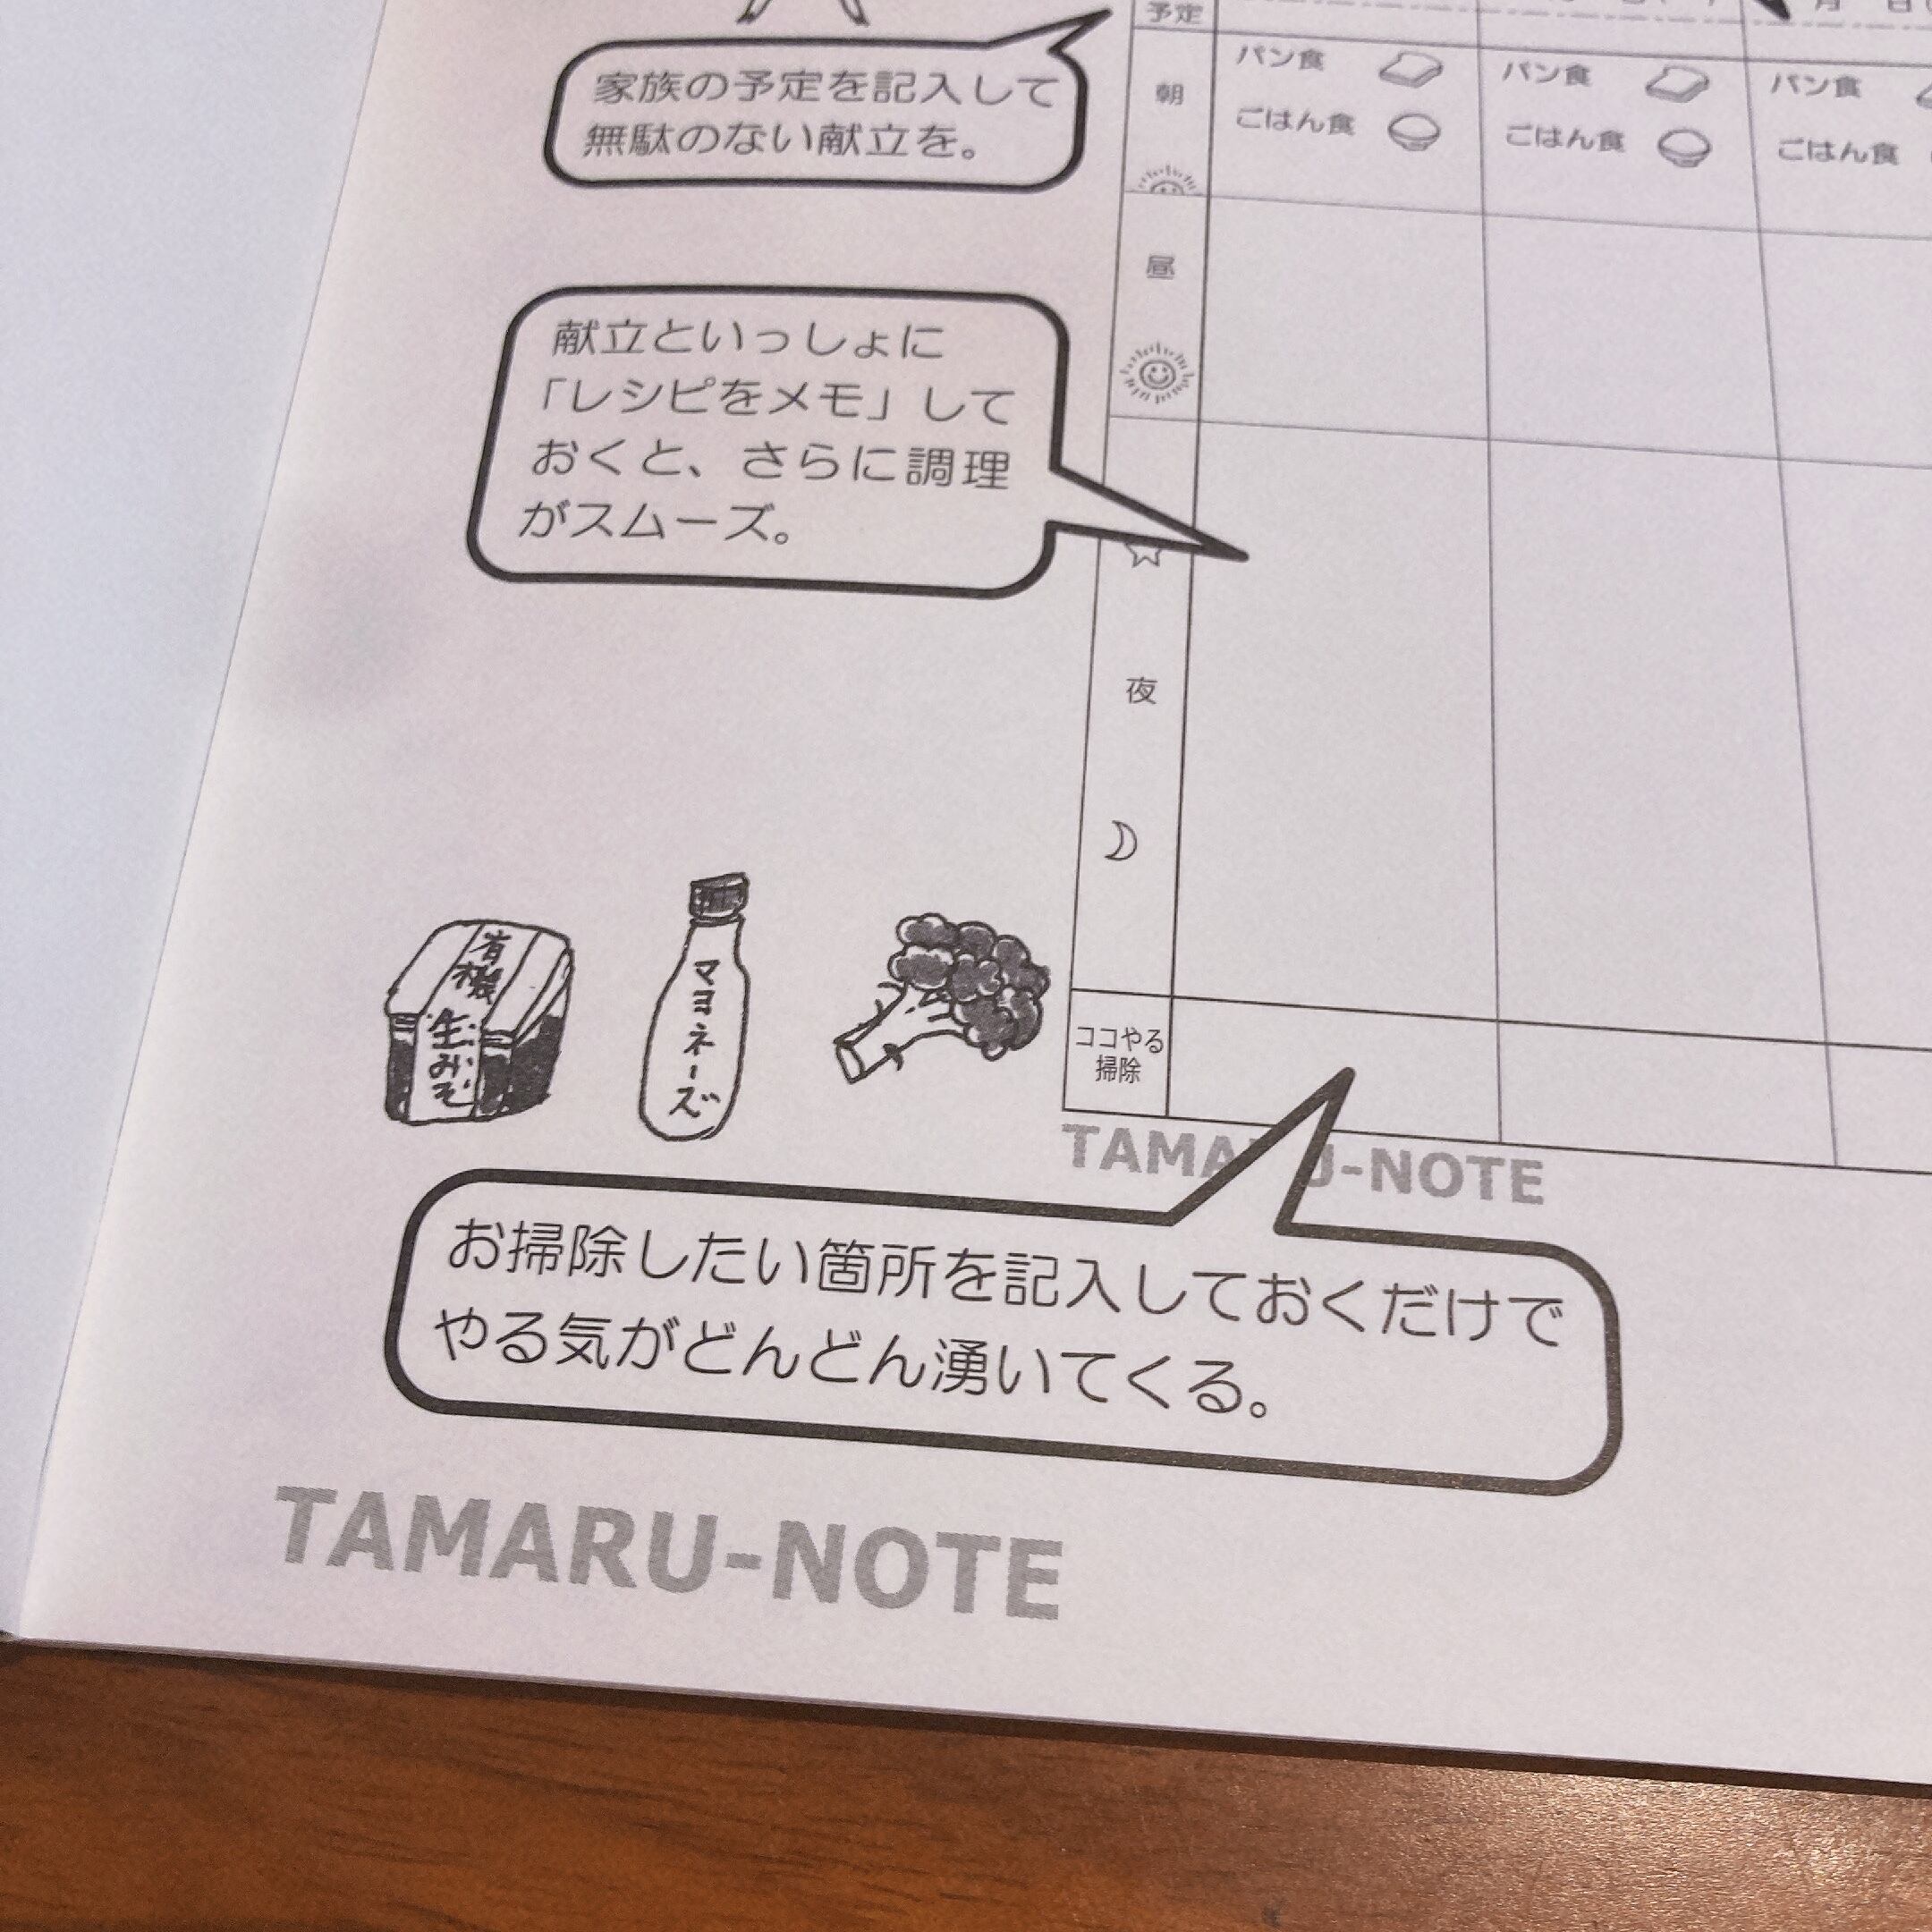 予定
月 日(
家族の予定を記入して
無駄のない献立を。
朝
パン食
パン食
パン食
ごはん食
ごはん食
ごはん食
昼
献立といっしょに
「レシピをメモ」して
おくと、さらに調理
がスムーズ。
夜
有機
生みそ
マヨネーズ
ココやる
掃除
TAMARU-NOTE
お掃除したい箇所を記入しておくだけで
やる気がどんどん湧いてくる。
TAMARU-NOTE